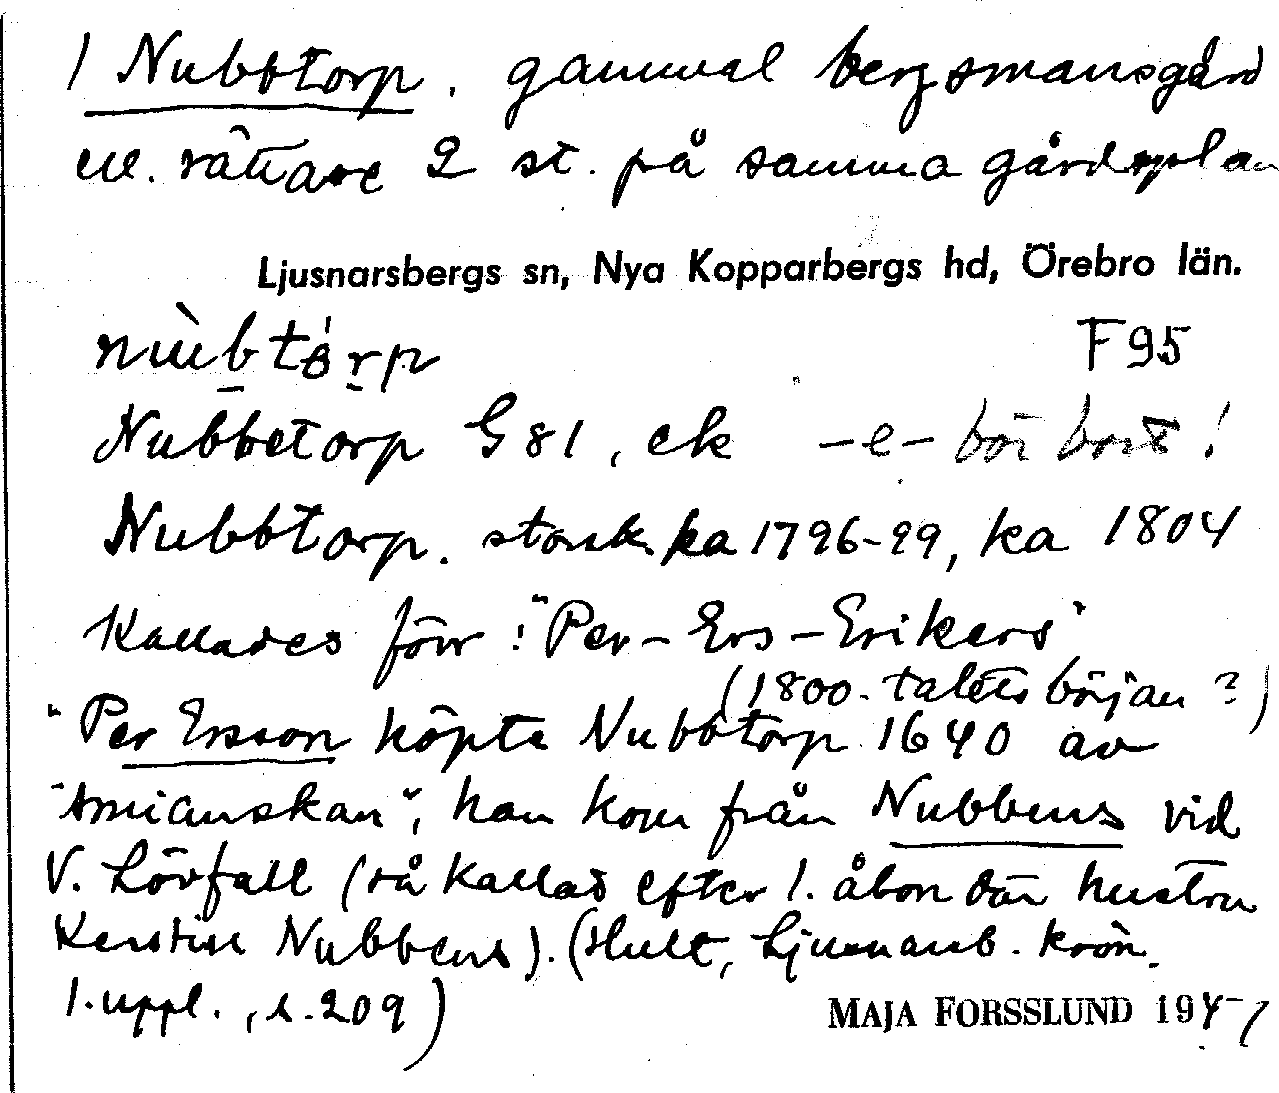 1 Nubbtorp. gammal bergsmansgård
ell. rättare 2 st. på samma gårdsplan
Ljusnarsbergs sn, Nya Kopparbergs hd, Örebro län.
F 95
Nubbetorp G 81, ek -e- bör bort!
Nubbtorp. storsk. ka 1796-99, ka 1804
Kallades förr: "Per-Ers-Erikers"
(1800-talets början?)
"Per Ersson köpte Nubbtorp 1640 av
"Amianskan", han kom från Nubbens vid
V. Lövfall (så kallad efter 1. åbon där hustru
Kerstin Nubbens). (Hult, Ljusnarsb. krön.
1. uppl., s. 209)
MAJA FORSSLUND 194